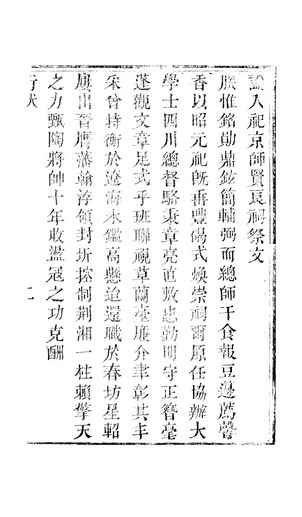 諭入祀京師賢良祠祭文
朕惟銘勒鼎鉉簡輔弼而總師干食報豆籩薦馨
香以昭元祀旣垂豐碣式煥崇祠爾原任協辦大
學士四川總督駱秉章亮直敦忠勤明守正簪毫
蓬觀文章足式乎班聯視草蘭臺廉介聿彰其丰
采曾持衡於遼海水鑑高懸迨還職於春坊星軺
屢出晉膺藩翰洊領封圻控制荆湘一柱賴擎天
之力甄陶將帥十年收盪寇之功克酬
行狀 二